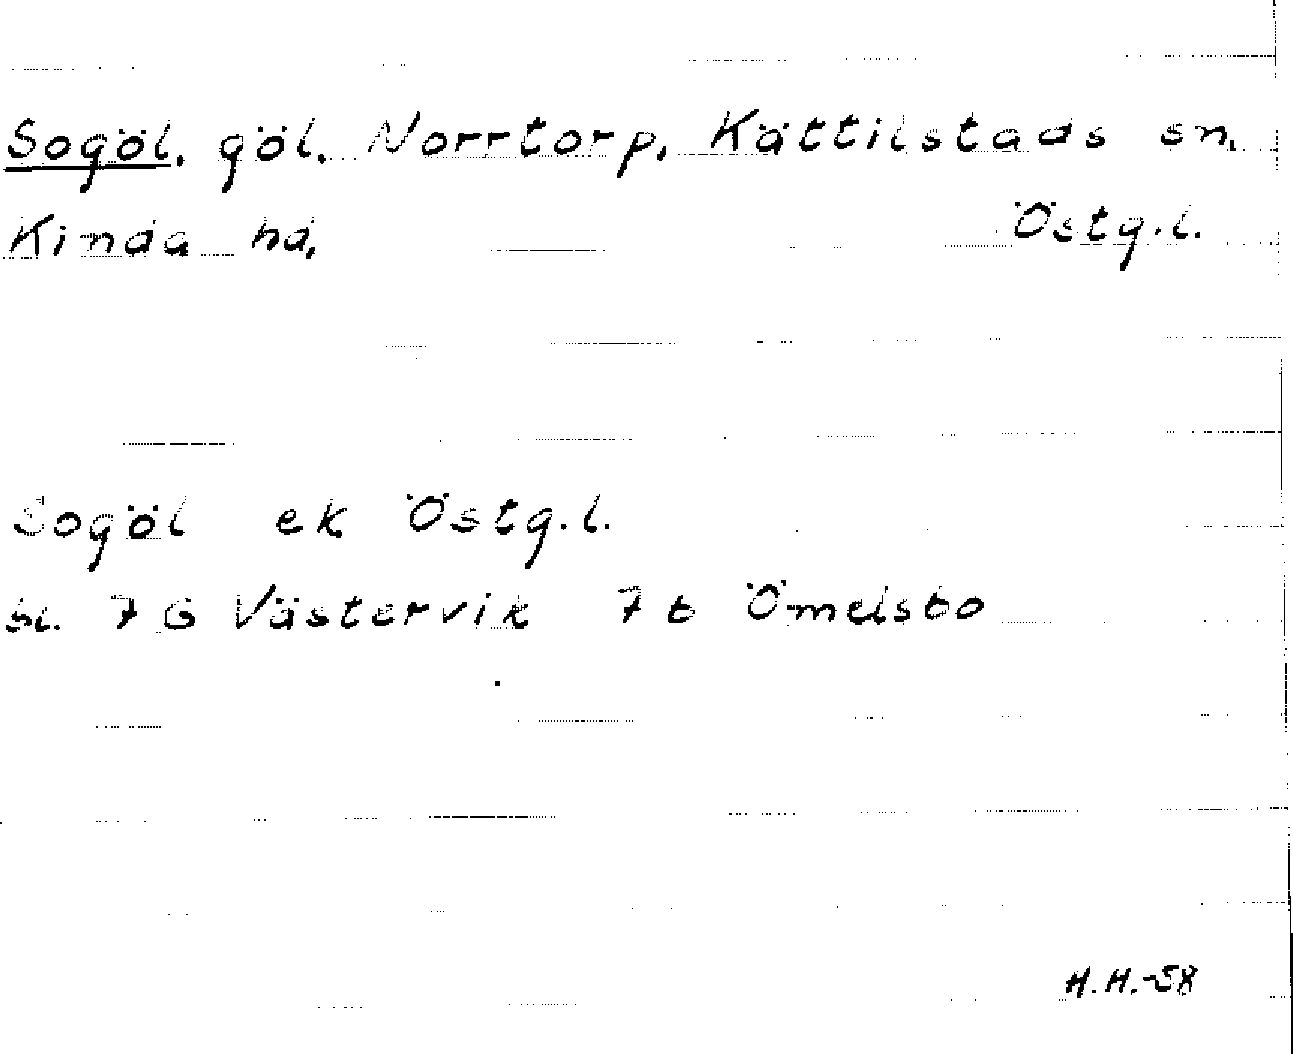 Sogöl, göl. Norrtorp, Kättilstads sn,
Kinda hd, Östg.l.
Sogöl ek Östg.l.
bl. 7 G Västervik 7 b Ömelsbo
H.H.-58